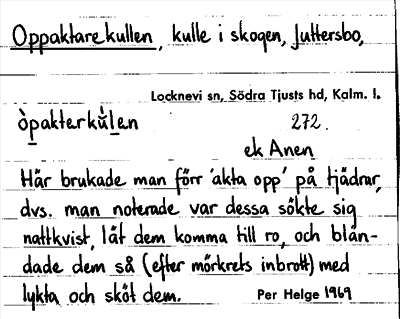 Oppaktarekullen, kulle i skogen, Juttersbo,
Locknevi sn, Södra Tjusts hd, Kalm. l.
òpakterkùlen 272.
ek Anen
Här brukade man förr 'akta opp' på tjädrar,
dvs. man noterade var dessa sökte sig
nattkvist, lät dem komma till ro, och blän-
dade dem så (efter mörkrets inbrott) med
lykta och sköt dem. Per Helge 1969